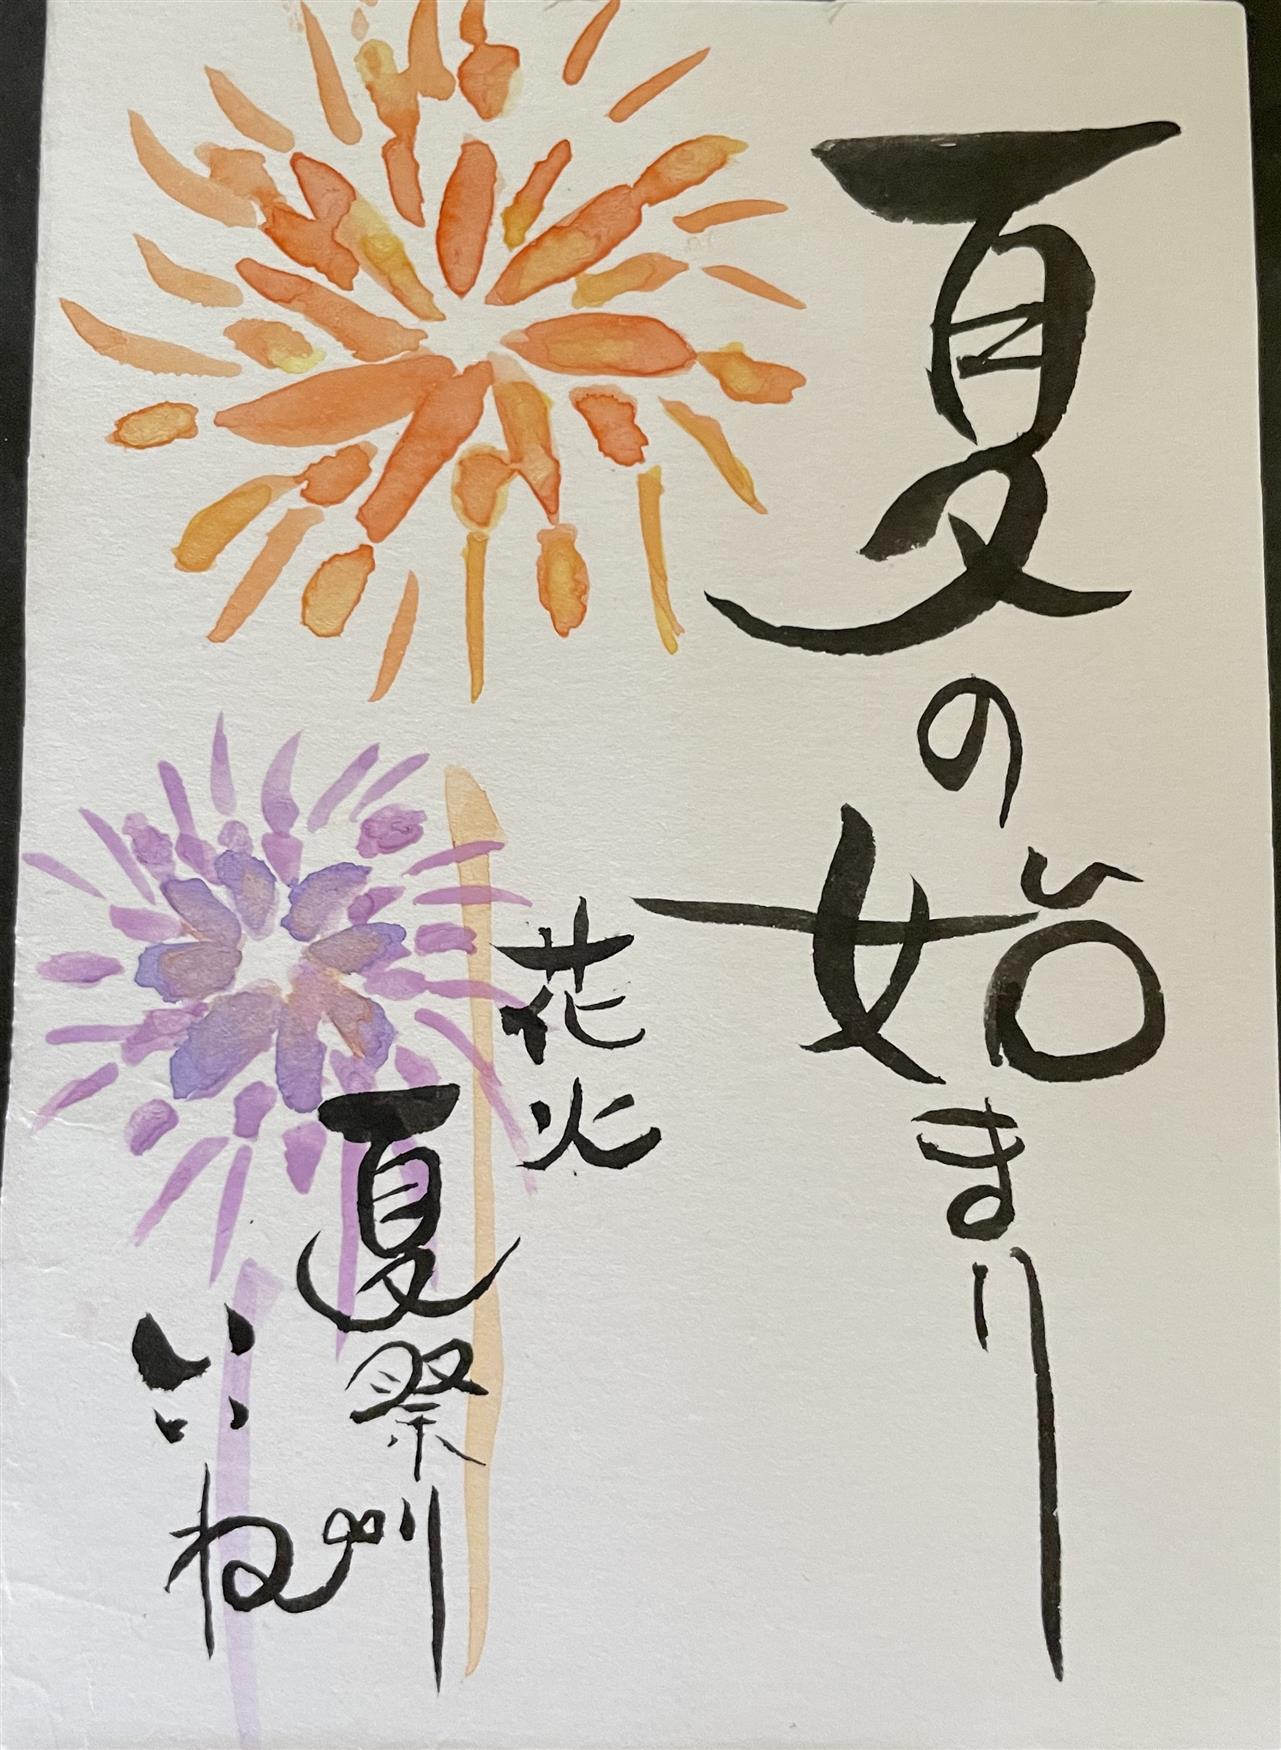 夏の始まり
花火
夏祭り
いいね